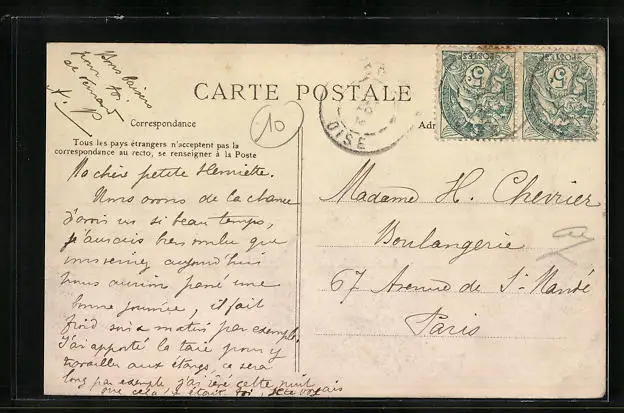 Bons baisers
pour toi
et Fernand
CARTE POSTALE
Correspondance
Tous les pays étrangers n'acceptent pas la
correspondance au recto, se renseigner à la Poste
10
OISE
Adr
5 5
POSTES POSTES
Ma chère petite Henriette.
Nous avons de la chance
d'avoir un si beau temps,
j'aurais bien voulu que
vous veniez aujourd'hui
nous aurions passé une
bonne journée, il fait
froid matin par exemple.
J'ai apporté la taie pour y
travailler aux étangs, ce sera
long par exemple, j'ai rêvé cette nuit
que cela était toi, je
Madame H. Chevrier
Boulangerie
67 Avenue de St Mandé
Paris